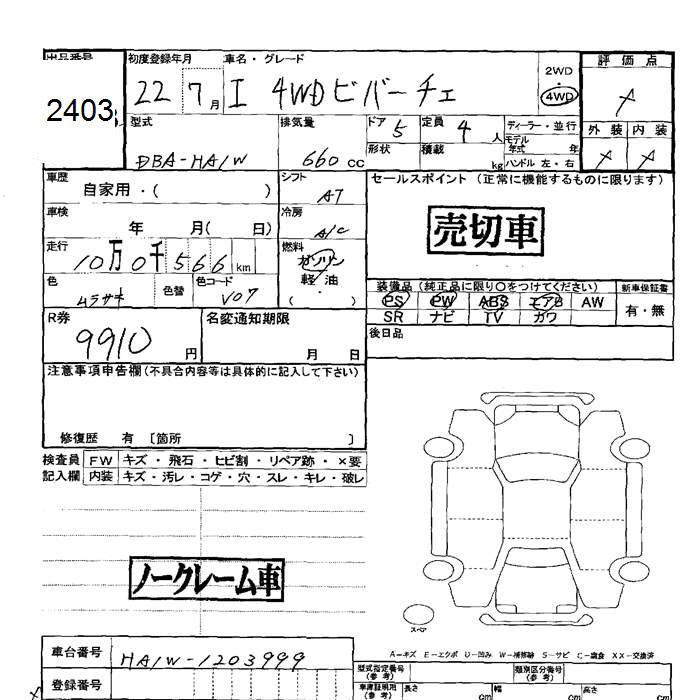 出品番号 初度登録年月 車名・グレード 評価点
2403 22 7月 I 4WDビバーチェ 2WD 4WD
型式 排気量 ドア 5 定員 4人 ディーラー・並行 外装 内装
DBA-HA1W 660cc 形状 積載 kg モデル年式 年
ハンドル 左・右
車歴 自家用・( ) シフト AT セールスポイント(正常に機能するものに限ります)
車検 年 月( 日) 冷房 A/C 売切車
走行 10万0千566km 燃料 ガソリン
軽・油
( )
色 ムラサキ 色替 色コード V07
装備品(純正品に限り○をつけてください) 新車保証書
PS PW ABS エアB AW 有・無
SR ナビ TV カワ
R券 9910円 名変通知期限 月 日 後日品
注意事項申告欄(不具合内容等は具体的に記入して下さい)
修復歴 有 〔箇所 〕
検査員 FW キズ・飛石・ヒビ割・リペア跡・×要
記入欄 内装 キズ・汚レ・コゲ・穴・スレ・キレ・破レ
ノークレーム車
スペア
A-キズ E-エクボ U-凹み W-補修跡 S-サビ C-腐食 XX-交換済
車台番号 HA1W-1203999 型式指定番号(参考) 類別区分番号(参考)
登録番号 車庫証明用(参考) 長さ cm 幅 cm 高さ cm